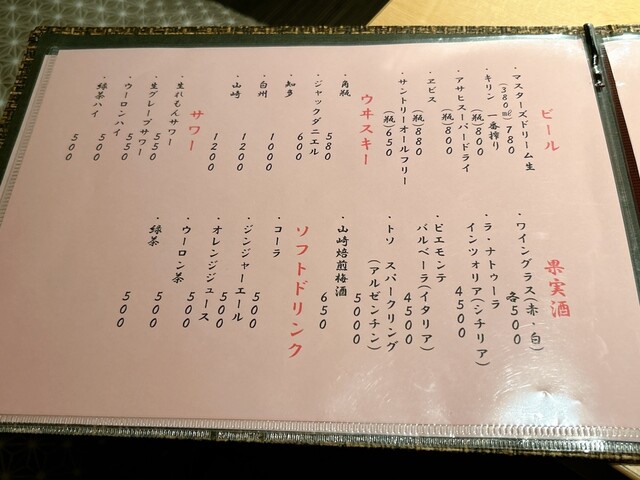 ビール
・マスターズドリーム生
(380㎖) 780
・キリン 一番搾り
(瓶)800
・アサヒスーパードライ
(瓶)800
・ヱビス
(瓶)880
・サントリーオールフリー
(瓶)650
ウヰスキー
・角瓶
580
・ジャックダニエル
600
・知多
1000
・白州
1200
・山崎
1200
サワー
・生れもんサワー
550
・生グレープサワー
550
・ウーロンハイ
500
・緑茶ハイ
500
果実酒
・ワイングラス(赤・白)
各500
・ラ・ナトゥーラ
インツォリア(シチリア)
4500
・ピエモンテ
バルベーラ(イタリア)
4500
・トソ スパークリング
(アルゼンチン)
5000
・山崎焙煎梅酒
650
ソフトドリンク
・コーラ
500
・ジンジャーエール
500
・オレンジジュース
500
・ウーロン茶
500
・緑茶
500